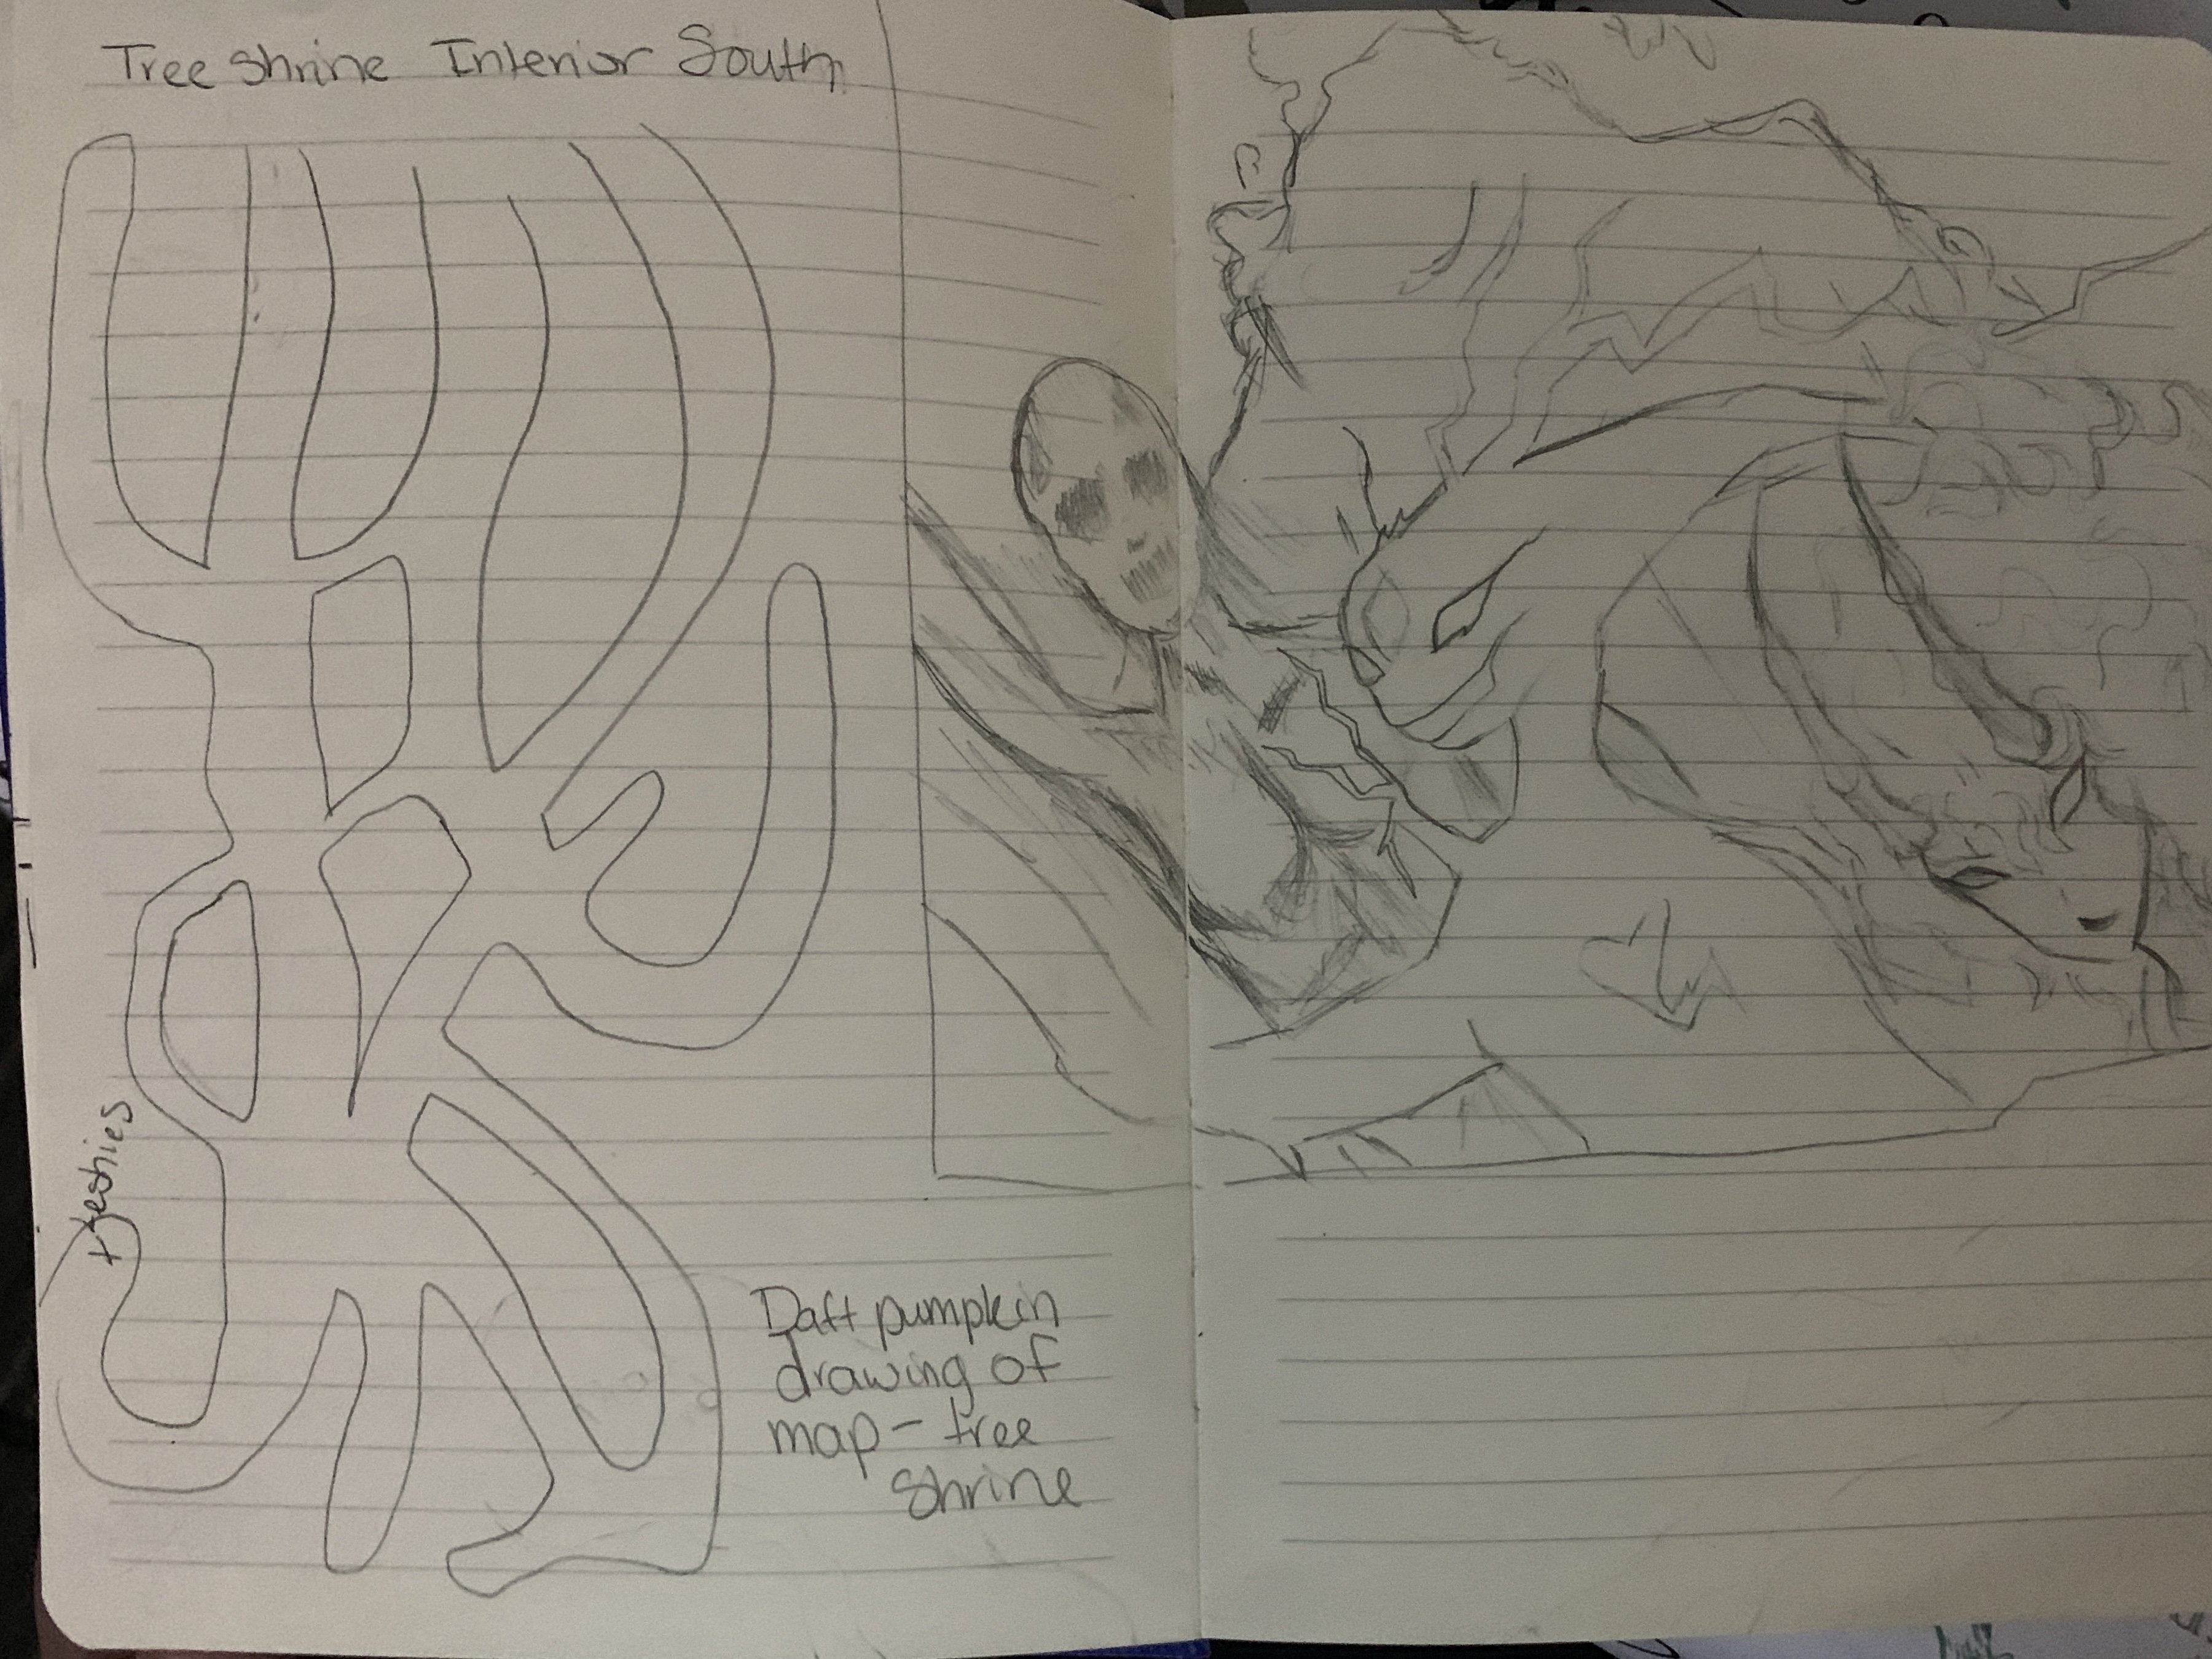 Tree Shrine Interior South
Daft pumpkin
drawing of
map - tree
shrine